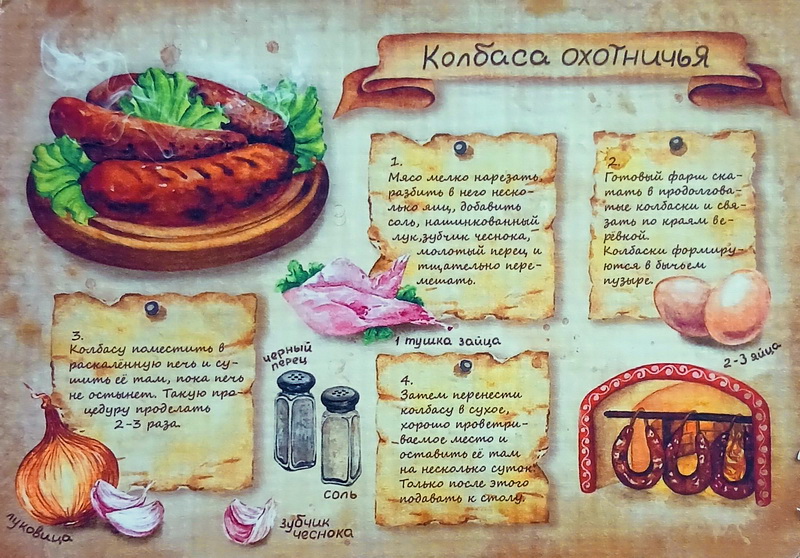 Колбаса охотничья
1.
Мясо мелко нарезать,
разбить в него неско-
лько яиц, добавить
соль, нашинкованный
лук,зубчик чеснока,
молотый перец и
тщательно пере-
мешать.
1 тушка зайца
2.
Готовый фарш ска-
тать в продолгова-
тые колбаски и свя-
зать по краям ве-
рёвкой.
Колбаски формиру-
ются в бычьем
пузыре.
2-3 яйца
3.
Колбасу поместить в
раскалённую печь и су-
шить её там, пока печь
не остынет. Такую про-
цедуру проделать
2-3 раза.
луковица
зубчик
чеснока
черный
перец
соль
4.
Затем перенести
колбасу в сухое,
хорошо проветри-
ваемое место и
оставить её там
на несколько суток.
Только после этого
подавать к столу.